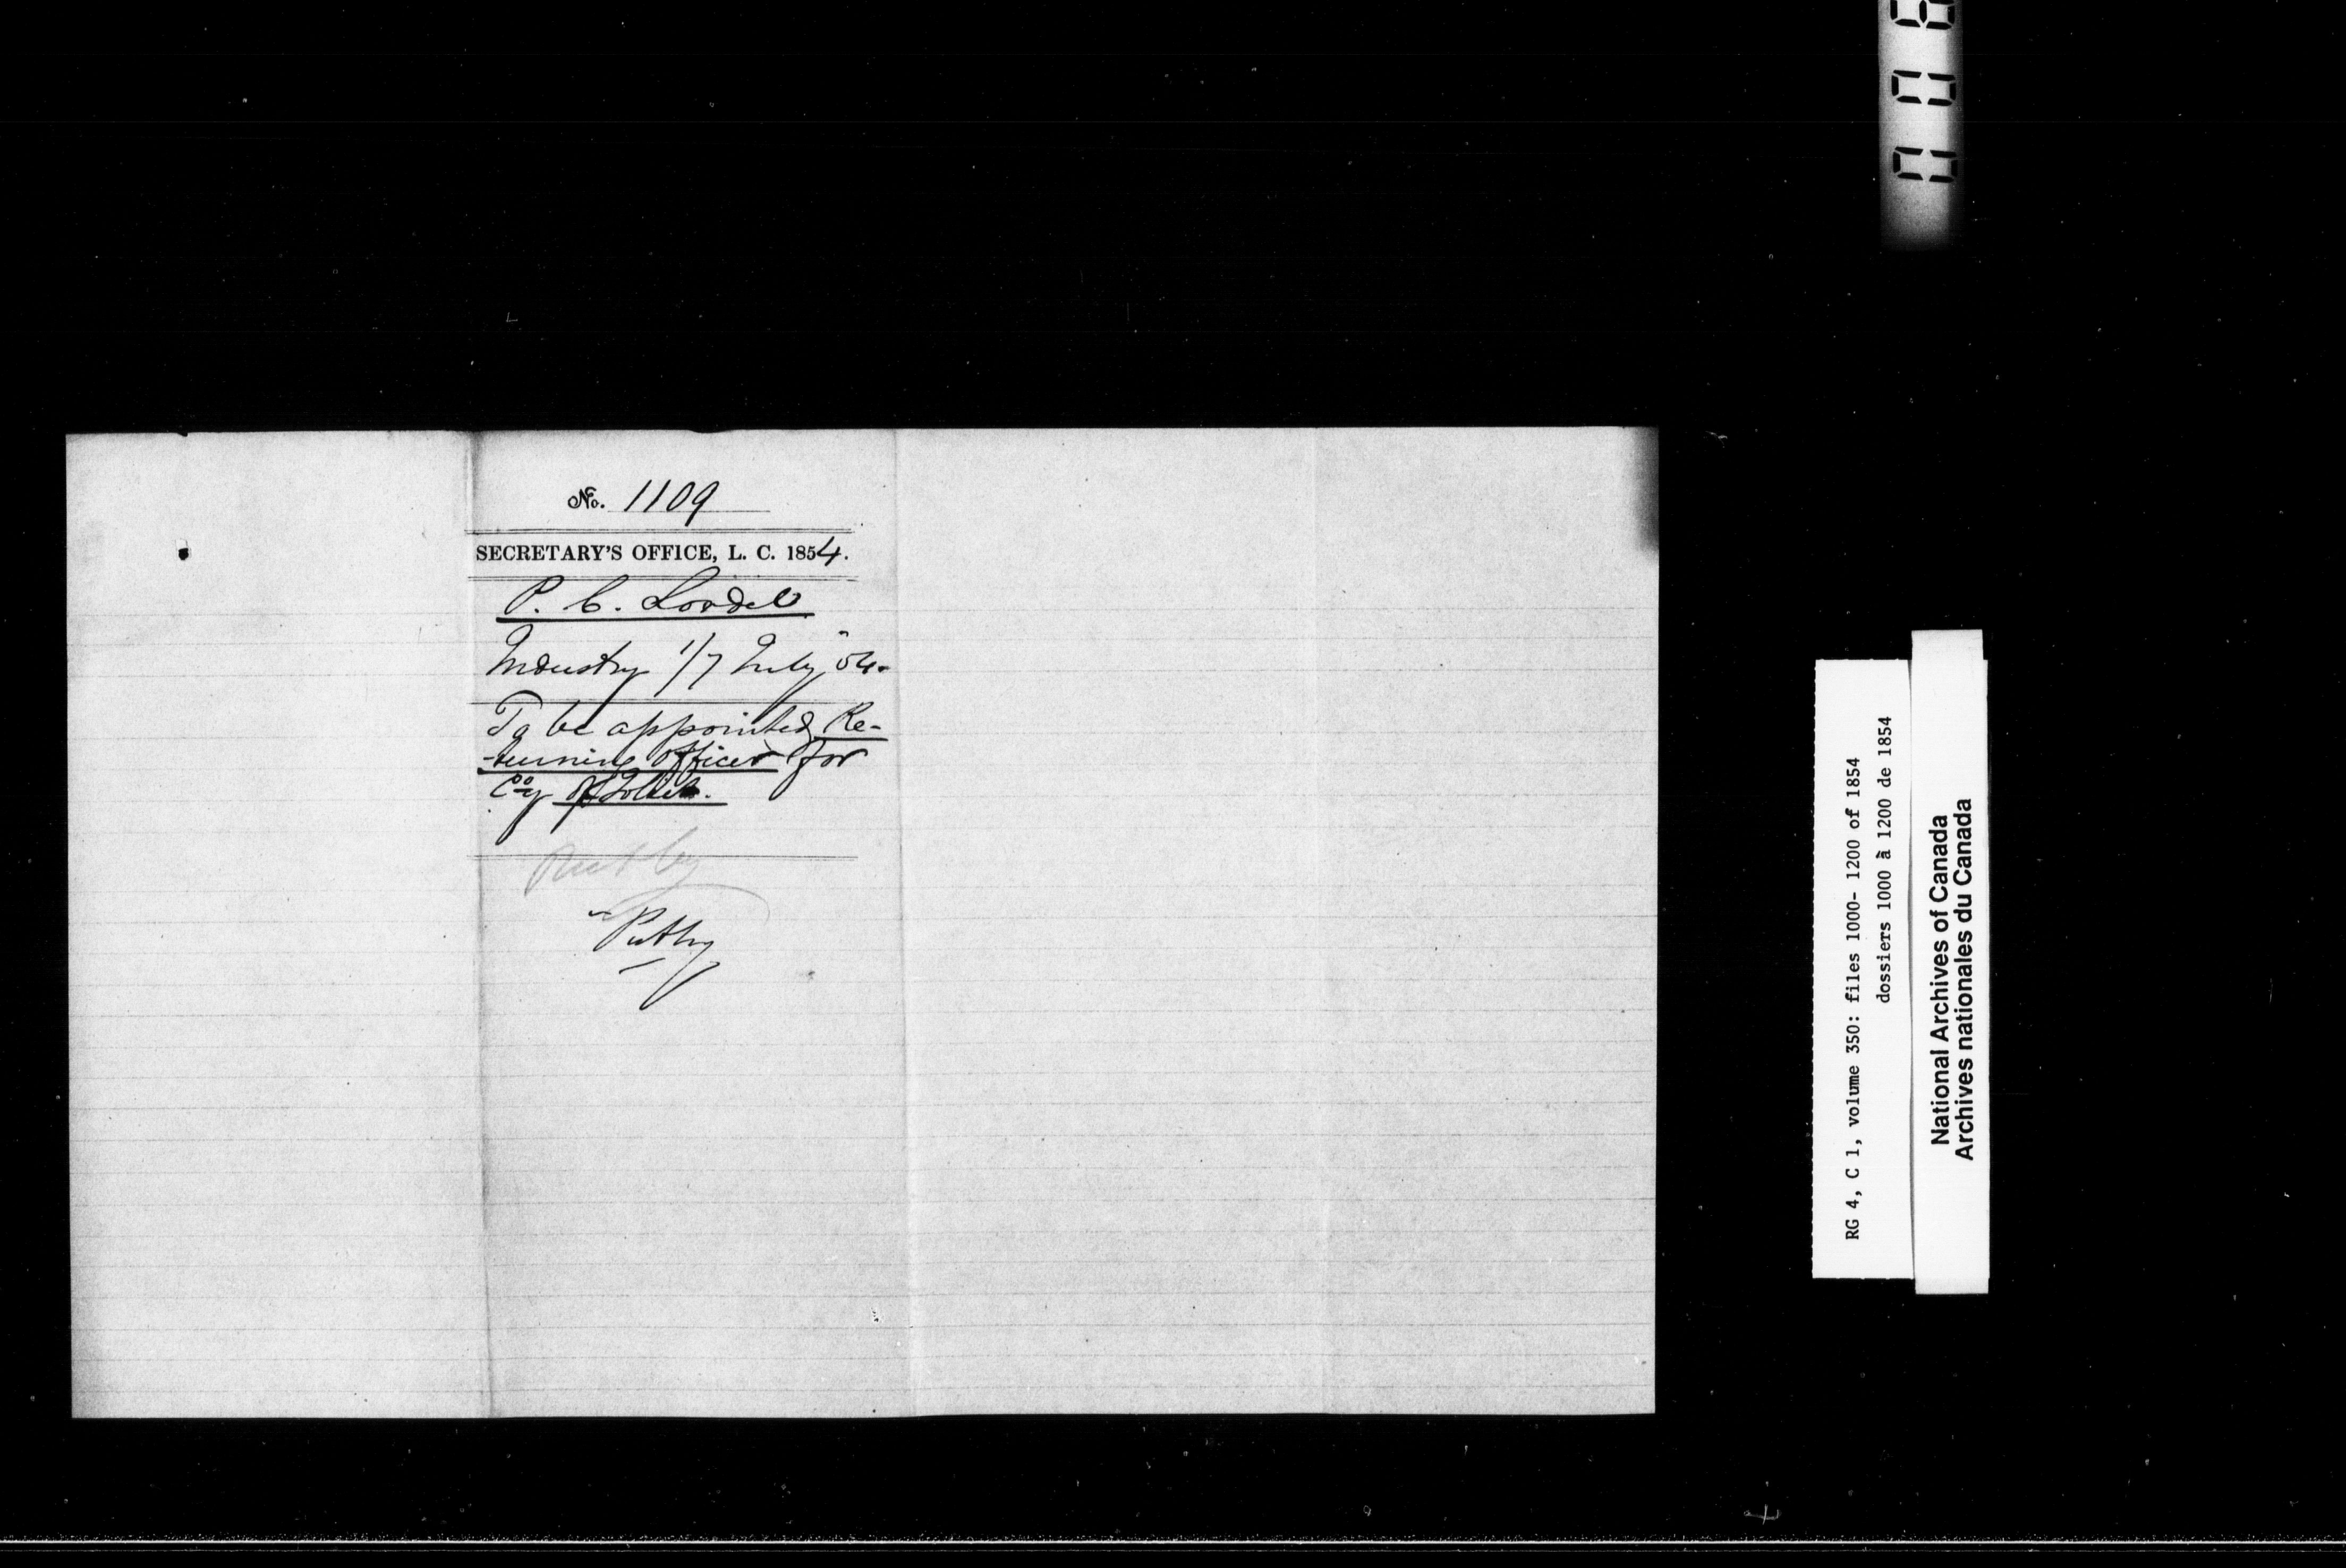 No. 1109
SECRETARY'S OFFICE, L. C. 1854.
P. C. Loedel
Industry 1/7 July 54.
To be appointed Re-
-turning Officer for
Coy of Joliette.
Put by
Put by
RG 4, C 1, volume 350: files 1000- 1200 of 1854
dossiers 1000 à 1200 de 1854
National Archives of Canada
Archives nationales du Canada